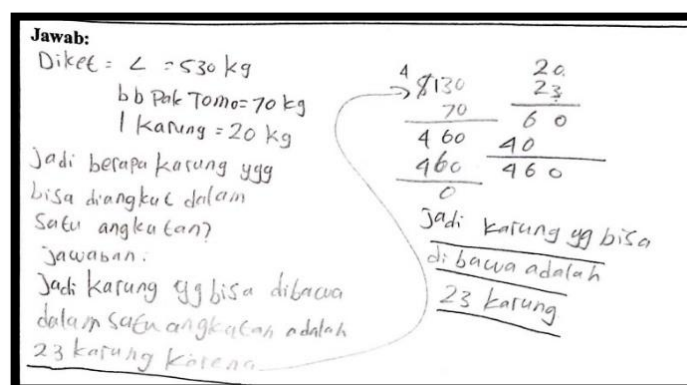 Jawab:
Diket = L = 530 kg
bb Pak Tomo = 70 kg
1 karung = 20 kg
Jadi berapa karung ygg
bisa diangkut dalam
satu angkutan?
Jawaban:
Jadi karung yg bisa dibawa
dalam satu angkutan adalah
23 karung karena
4
5130
70
460
460
0
20
23
60
40
460
Jadi karung yg bisa
dibawa adalah
23 karung